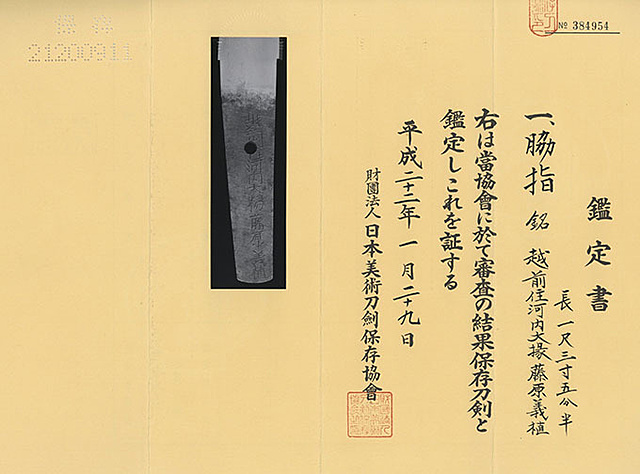 No 384954
鑑定書
一、脇指 銘 越前住河内大掾藤原義植
長一尺三寸五分半
右は當協會に於て審査の結果保存刀剣と
鑑定しこれを証する
平成二十二年一月二十九日
財團法人 日本美術刀剣保存協會
21200911